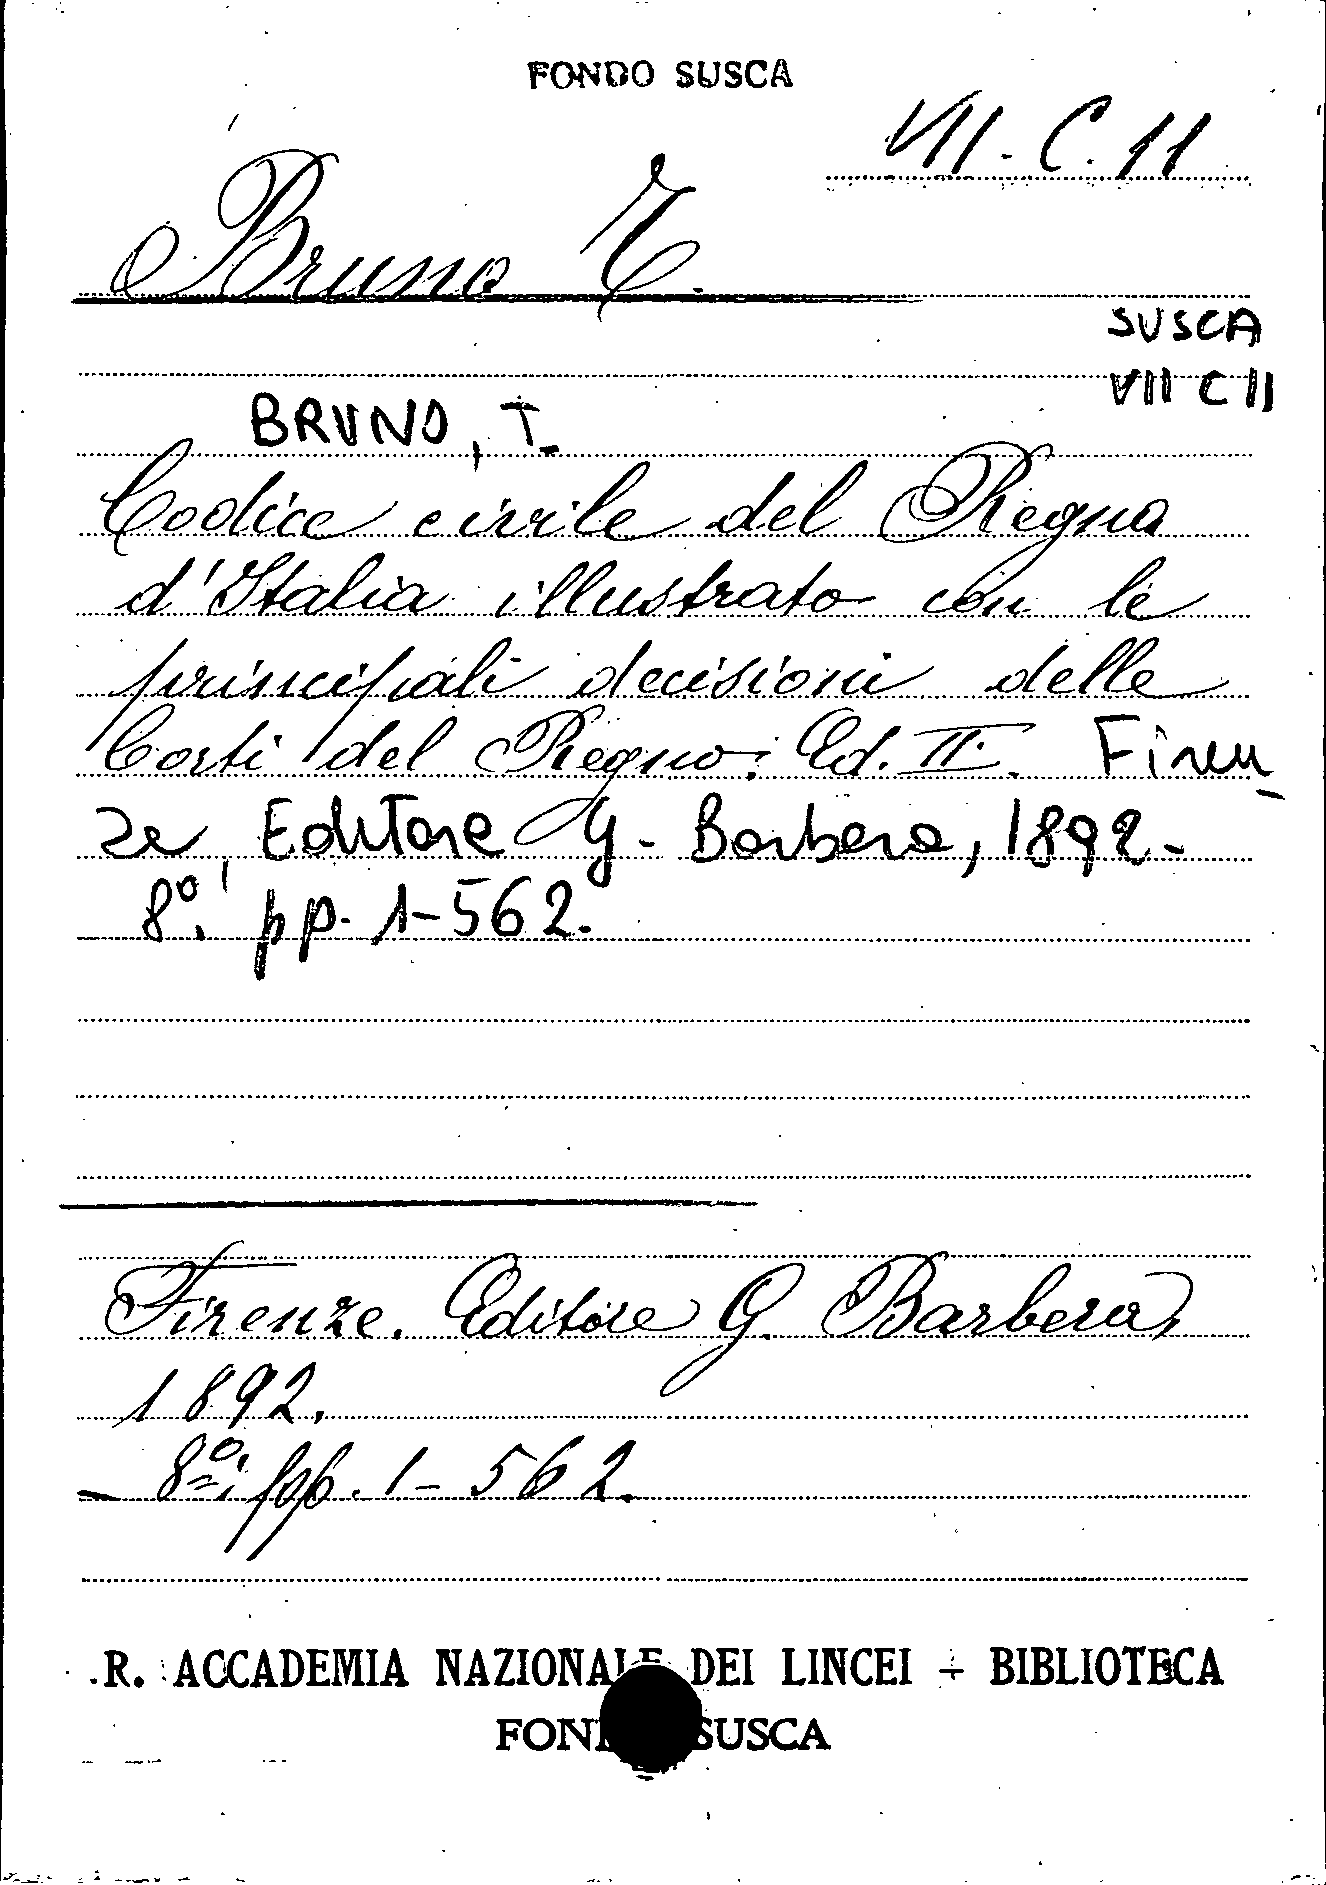 FONDO SUSCA
VII. C. 11
Bruno T.
SUSCA
VII C 11
BRUNO, T.
Codice civile del Regno
d'Italia illustrato con le
principali decisioni delle
Corti del Regno. Ed. II. Firen
ze, Editore G. Barbera, 1892.
8º. pp. 1-562.
Firenze. Editore G. Barbera,
1892.
8º; pp. 1-562.
R. ACCADEMIA NAZIONALE DEI LINCEI - BIBLIOTECA
FONDO SUSCA